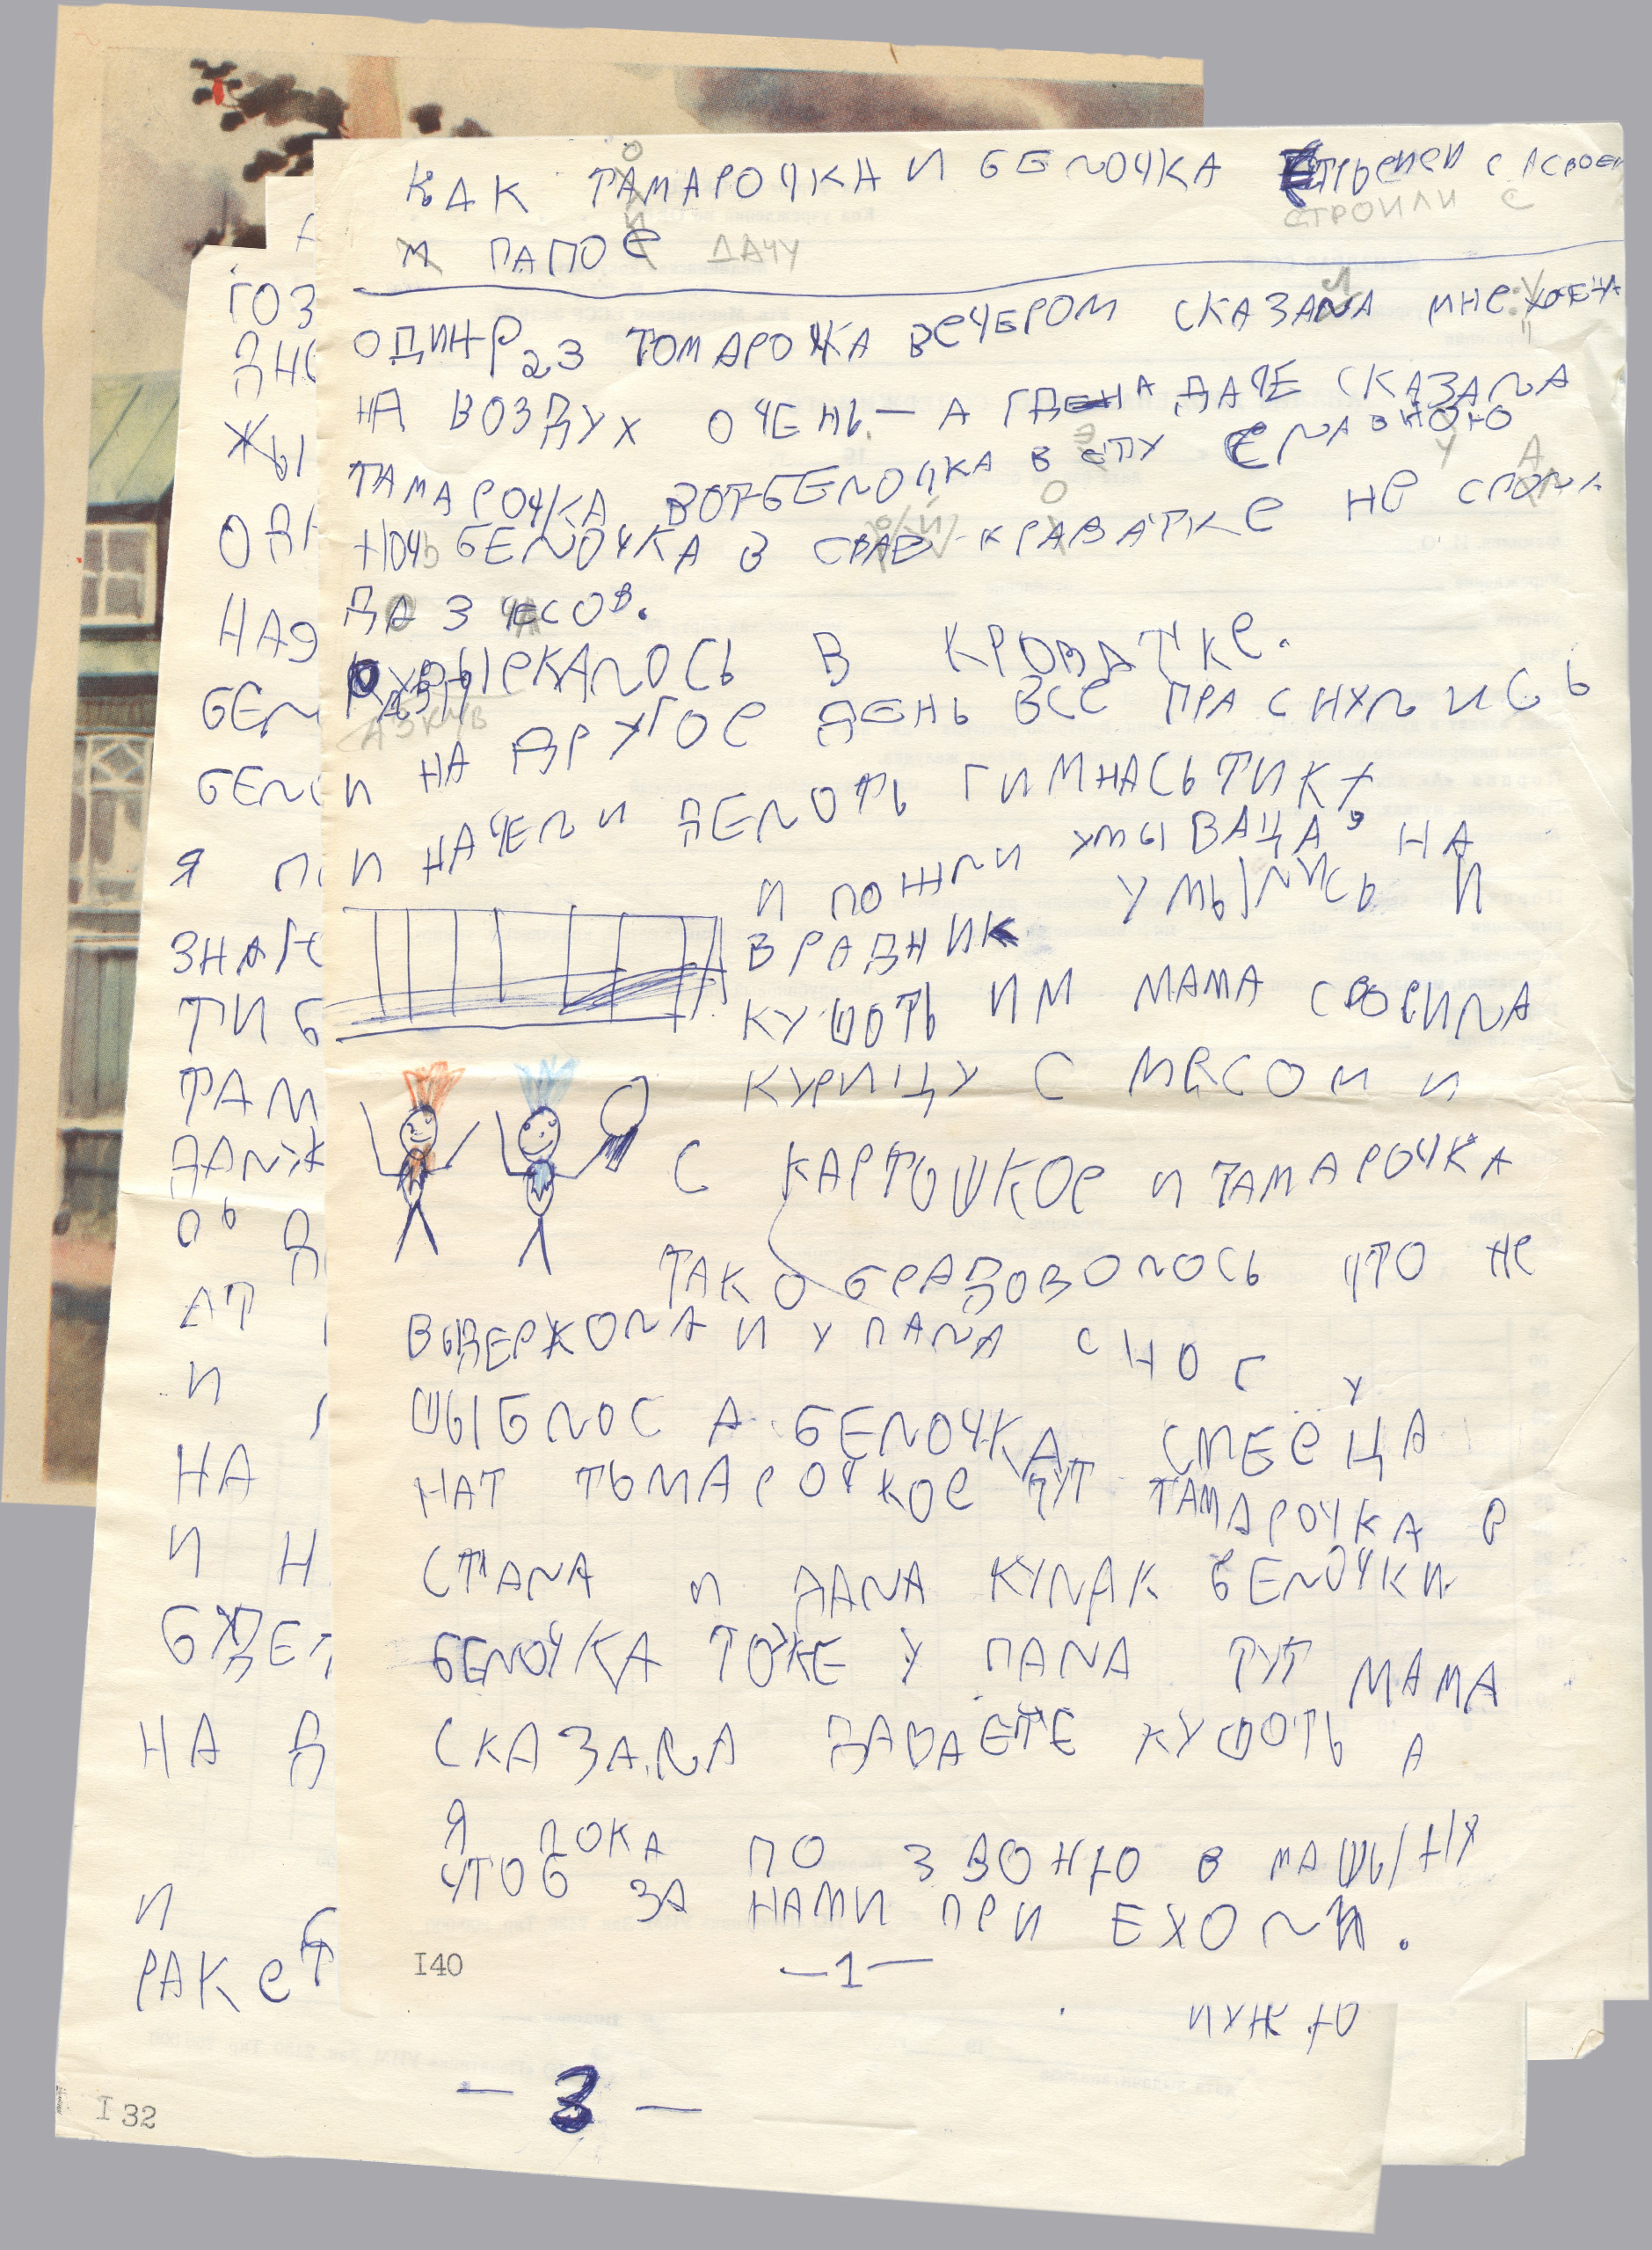 КАК ТАМАРОЧКА И БЕЛОЧКА СТРОИЛИ С
ПАПОЕ ДАЧУ
ОДИНРАЗ ТОМАРОЧКА ВЕЧЕРОМ СКАЗАЛА МНЕ
НА ВОЗДУХ ОЧЕНЬ. — А ГДЕ НА ДАЧЕ СКАЗАЛА
ТАМАРОЧКА ВОТ БЕЛОЧКА В
НОЧЬ БЕЛОЧКА В КРАВАТКЕ НЕ СПОЛА
ДО 3 ЧЕСОВ.
В КРОВАТКЕ.
И НА ДРУГОЕ ДЕНЬ ВСЕ ПРАСНУЛИСЬ
И НАЧЕЛИ ДЕЛОТЬ ГИМНАСЬТИКУ
И ПОШЛИ УМЫВАЦА НА
УМЫЛИСЬ И
КУШОТЬ ИМ МАМА СВОРИЛА
КУРИЦУ С МЕСОМ И
С КАРТОШКОЕ И ТАМАРОЧКА
ТАК ОБРАДОВОЛОСЬ ЧТО НЕ
ВЫДЕРЖОЛА И УПАЛА С НОГ У
ШЫБЛОС А БЕЛОЧКА СМЕЕЦА
НАТ ТЬМАРОЧКОЕ ТУТ ТАМАРОЧКА В
СТАЛА И ДАЛА КУЛАК БЕЛОЧКИ
БЕЛОЧКА ТОЖЕ УПАЛА ТУТ МАМА
СКАЗАЛА ДАВАЕТЕ КУШОТЬ А
Я ПОКА ПО ЗВОНЮ В МАШЫНУ
ЧТОБ ЗА НАМИ ПРИ ЕХОЛИ.
I40
—1—
ГОЗ
ЖЫ
НАЯ
БЕЛ
БЕЛО
Я П
ЗНАЕ
ТИ Б
ТАМ
АТ
И
НА
И Н
БУДЕТ
НА Д
И
РАКЕТ
НУЖНО
— 3 —
I 32